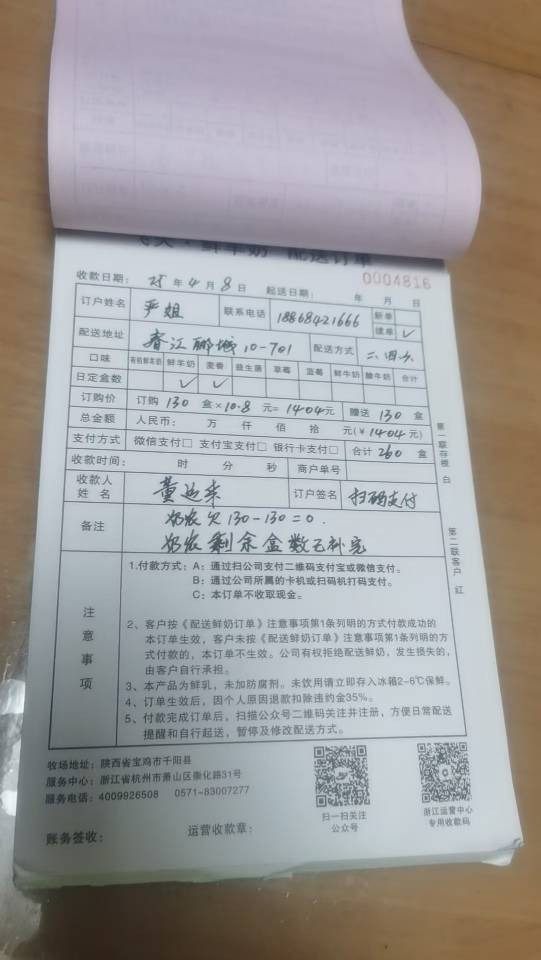 鲜羊奶 配送订单
0004816
收款日期： 25 年 4 月 8 日 起送日期： 年 月 日
订户姓名 严姐 联系电话 18868421666 新单
续单 ✓
配送地址 春江郦城10-701 配送方式 二、四、六
口味 有机鲜羊奶 鲜羊奶 麦香 益生菌 草莓 蓝莓 鲜牛奶 酸牛奶 合计
日定盒数 ✓ ✓
订购价 订购 130 盒×10.8 元= 1404元 赠送 130 盒
总金额 人民币： 万 仟 佰 拾 元(￥1404元)
支付方式 微信支付□ 支付宝支付□ 银行卡支付□ 合计 260 盒
收款时间： 时 分 秒 商户单号
收款人
姓 名 董 订户签名 扫码支付
备注 奶农欠130-130=0.
奶农剩余盒数已补完
注意事项
1.付款方式： A：通过扫公司支付二维码支付宝或微信支付。
B：通过公司所属的卡机或扫码机打码支付。
C：本订单不收取现金。
2、客户按《配送鲜奶订单》注意事项第1条列明的方式付款成功的
本订单生效，客户未按《配送鲜奶订单》注意事项第1条列明的方
式付款的，本订单不生效。公司有权拒绝配送鲜奶，发生损失的，
由客户自行承担。
3、本产品为鲜乳，未加防腐剂。未饮用请立即存入冰箱2-6℃保鲜。
4、订单生效后，因个人原因退款扣除违约金35%。
5、付款完成订单后，扫描公众号二维码关注并注册，方便日常配送
提醒和自行起送，暂停及修改配送方式。
第一联存根 白
第二联客户 红
牧场地址：陕西省宝鸡市千阳县
服务中心：浙江省杭州市萧山区崇化路31号
服务电话：4009926508 0571-83007277
扫一扫关注
公众号
浙江运营中心
专用收款码
账务签收： 运营收款章：